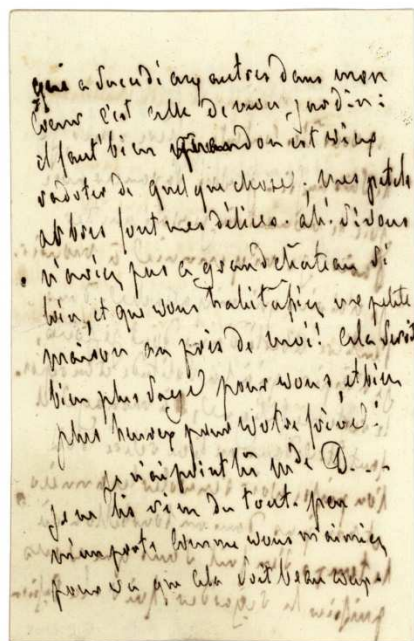 qui a succédé aux autres dans mon
cœur c'est celle de mon jardin :
il faut bien quand on est vieux
radoter de quelque chose ; mes petits
arbres sont mes délices. ah ! si vous
n'aviez pas ce grand château si
loin, et que vous habitassiez une petite
maison près de moi ! cela serait
bien plus sage pour vous, et bien
plus heureux pour votre
je n'ai point lu Mde D.
je ne lis rien du tout. peu
m'importe comme vous m'aimiez
pourvu que cela soit beaucoup.